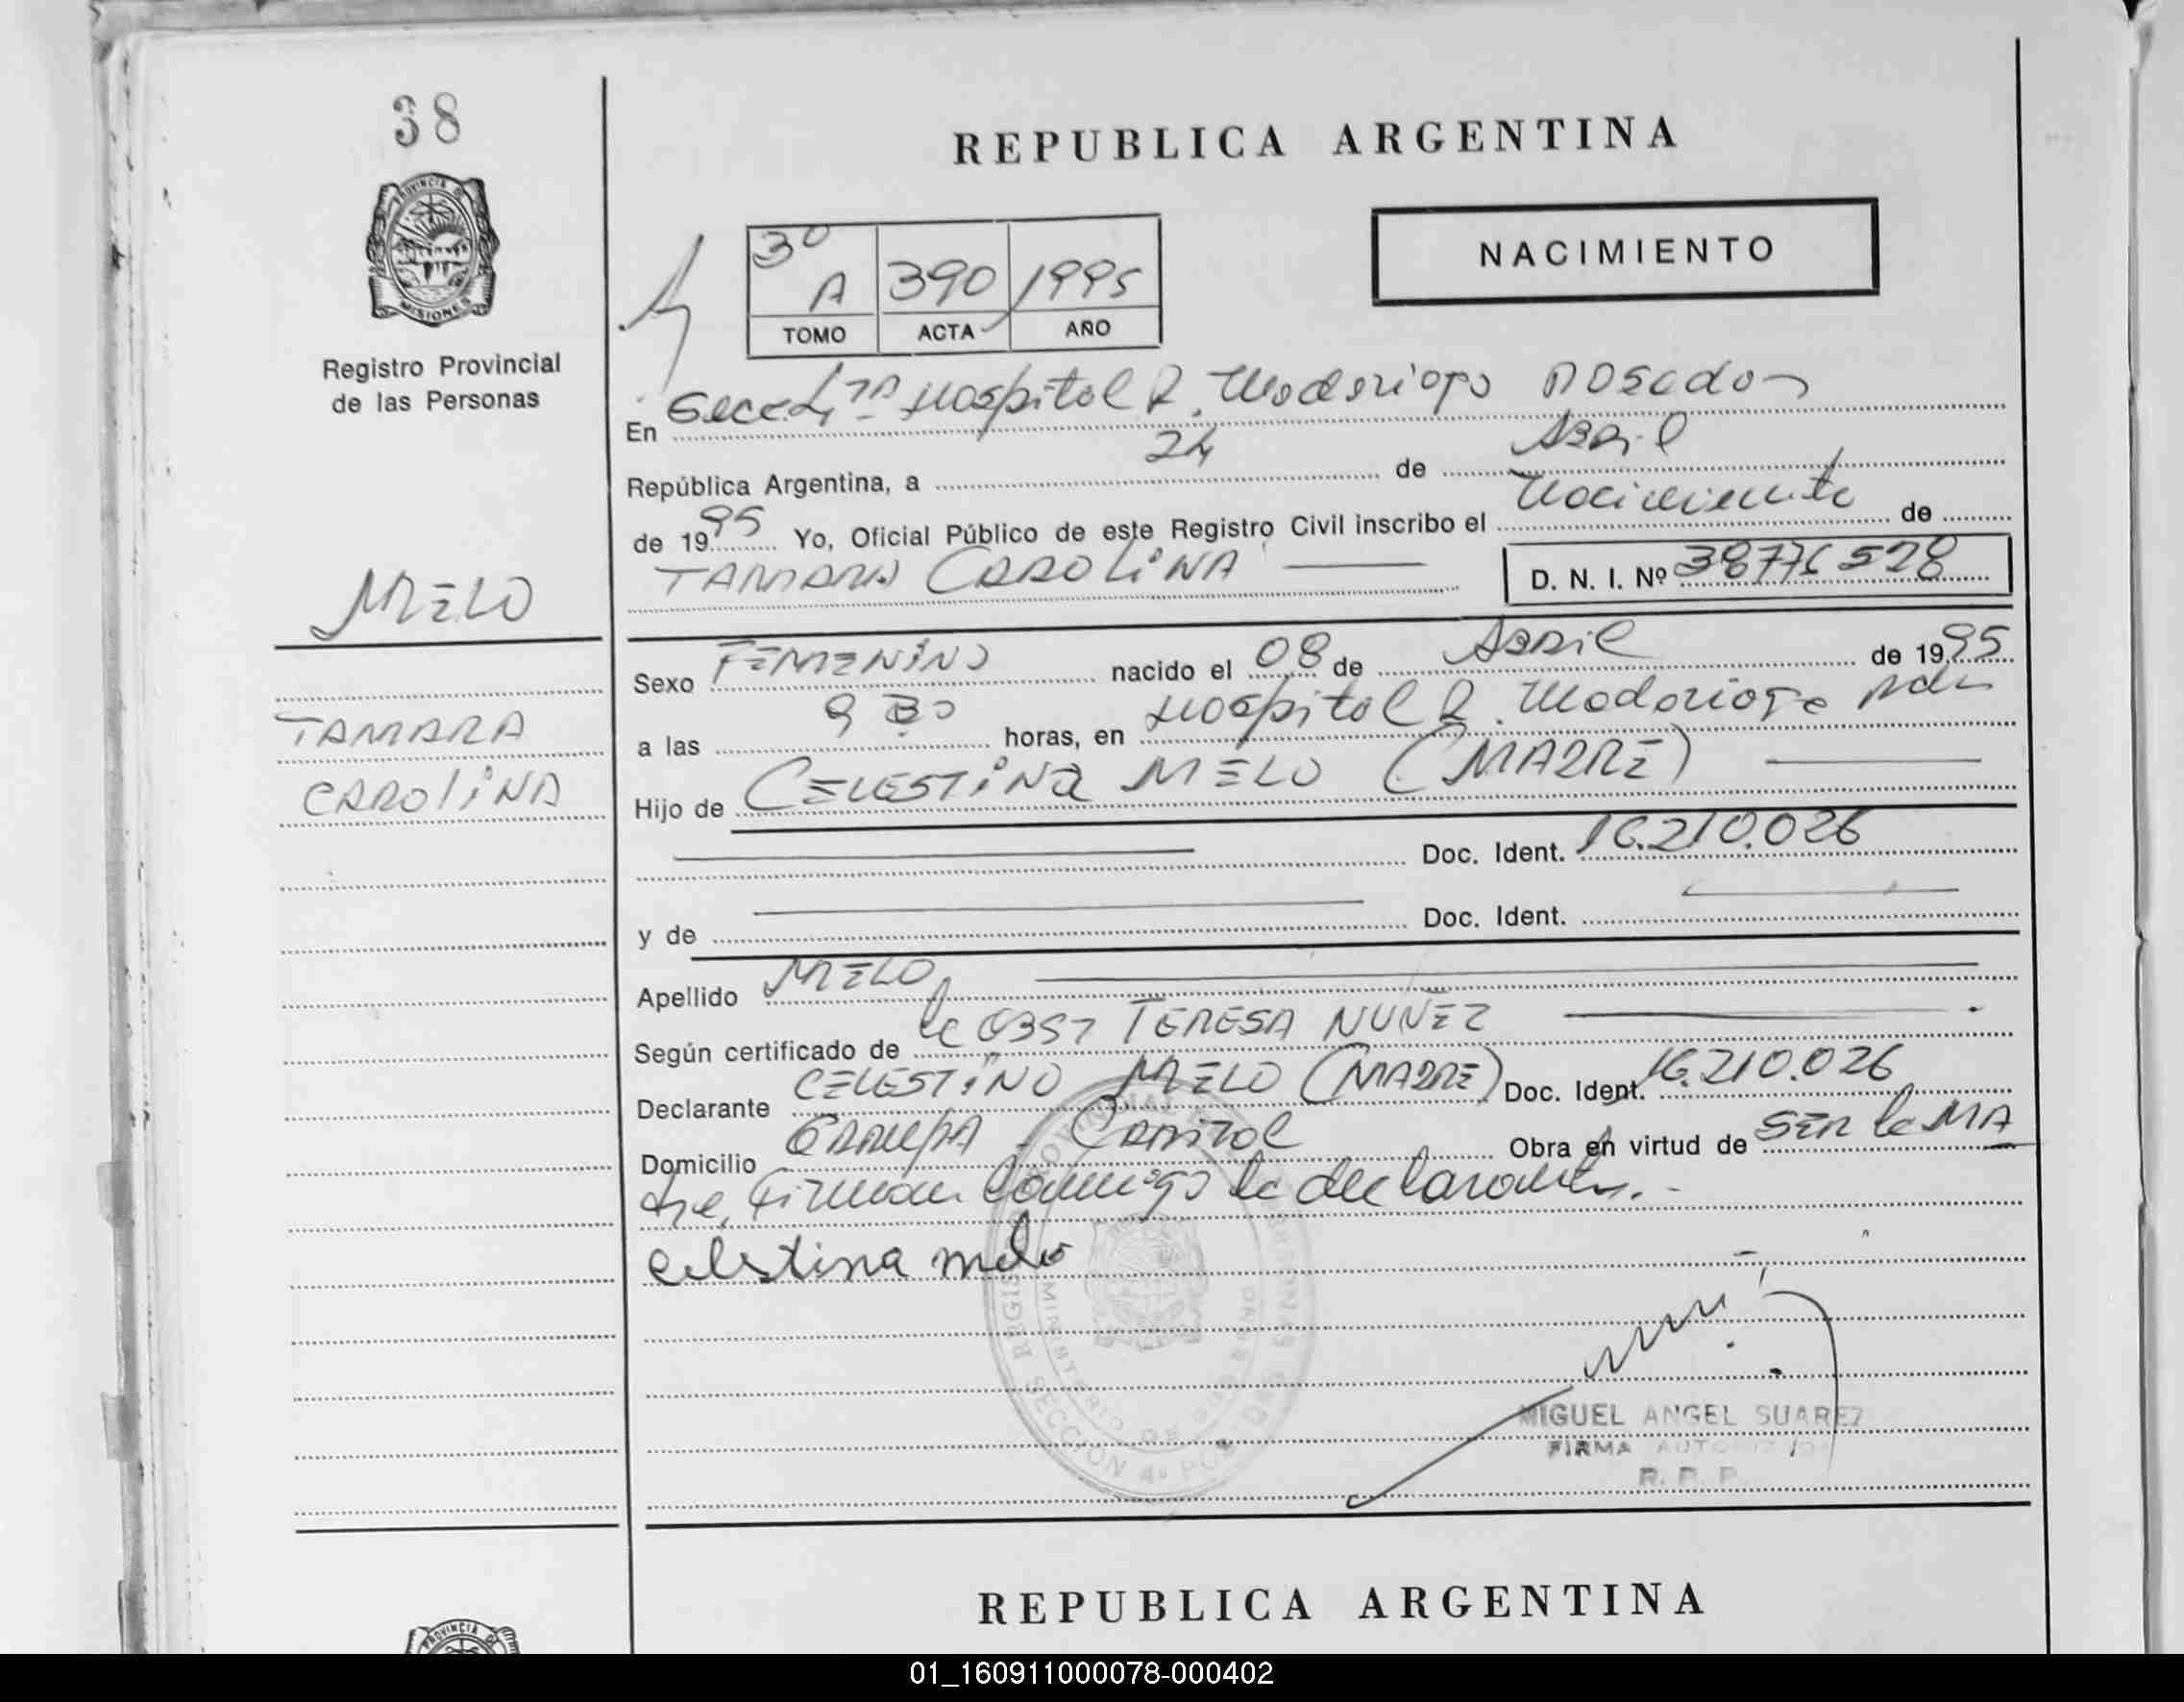 38
REPUBLICA ARGENTINA
PROVINCIA DE
MISIONES
NACIMIENTO
3º
A 390 1995
TOMO ACTA AÑO
Registro Provincial
de las Personas
En Secc. 4ta Hospital R. Madariaga Posadas
República Argentina, a 24 de Abril
de 1995 Yo, Oficial Público de este Registro Civil inscribo el Nacimiento de
TAMARA CAROLINA D. N. I. Nº 38776528
MELO
Sexo FEMENINO nacido el 08 de Abril de 1995
TAMARA
a las 9 30 horas, en Hospital R. Madariaga Pdas
CAROLINA
Hijo de CELESTINA MELO (MADRE)
Doc. Ident. 16.210.026
y de Doc. Ident.
Apellido MELO
Según certificado de la OBST TERESA NUÑEZ
Declarante CELESTINO MELO (MADRE) Doc. Ident. 16.210.026
Domicilio GARUPA - Capital Obra en virtud de SER la MA
dre, Firman conmigo la declarante.-
celestina melo
REGISTRO PROVINCIAL DE LAS PERSONAS
MINISTERIO DE GOBIERNO
SECCION 4a
MIGUEL ANGEL SUAREZ
FIRMA AUTORIZADA
R. P. P.
REPUBLICA ARGENTINA
PROVINCIA DE
01_160911000078-000402